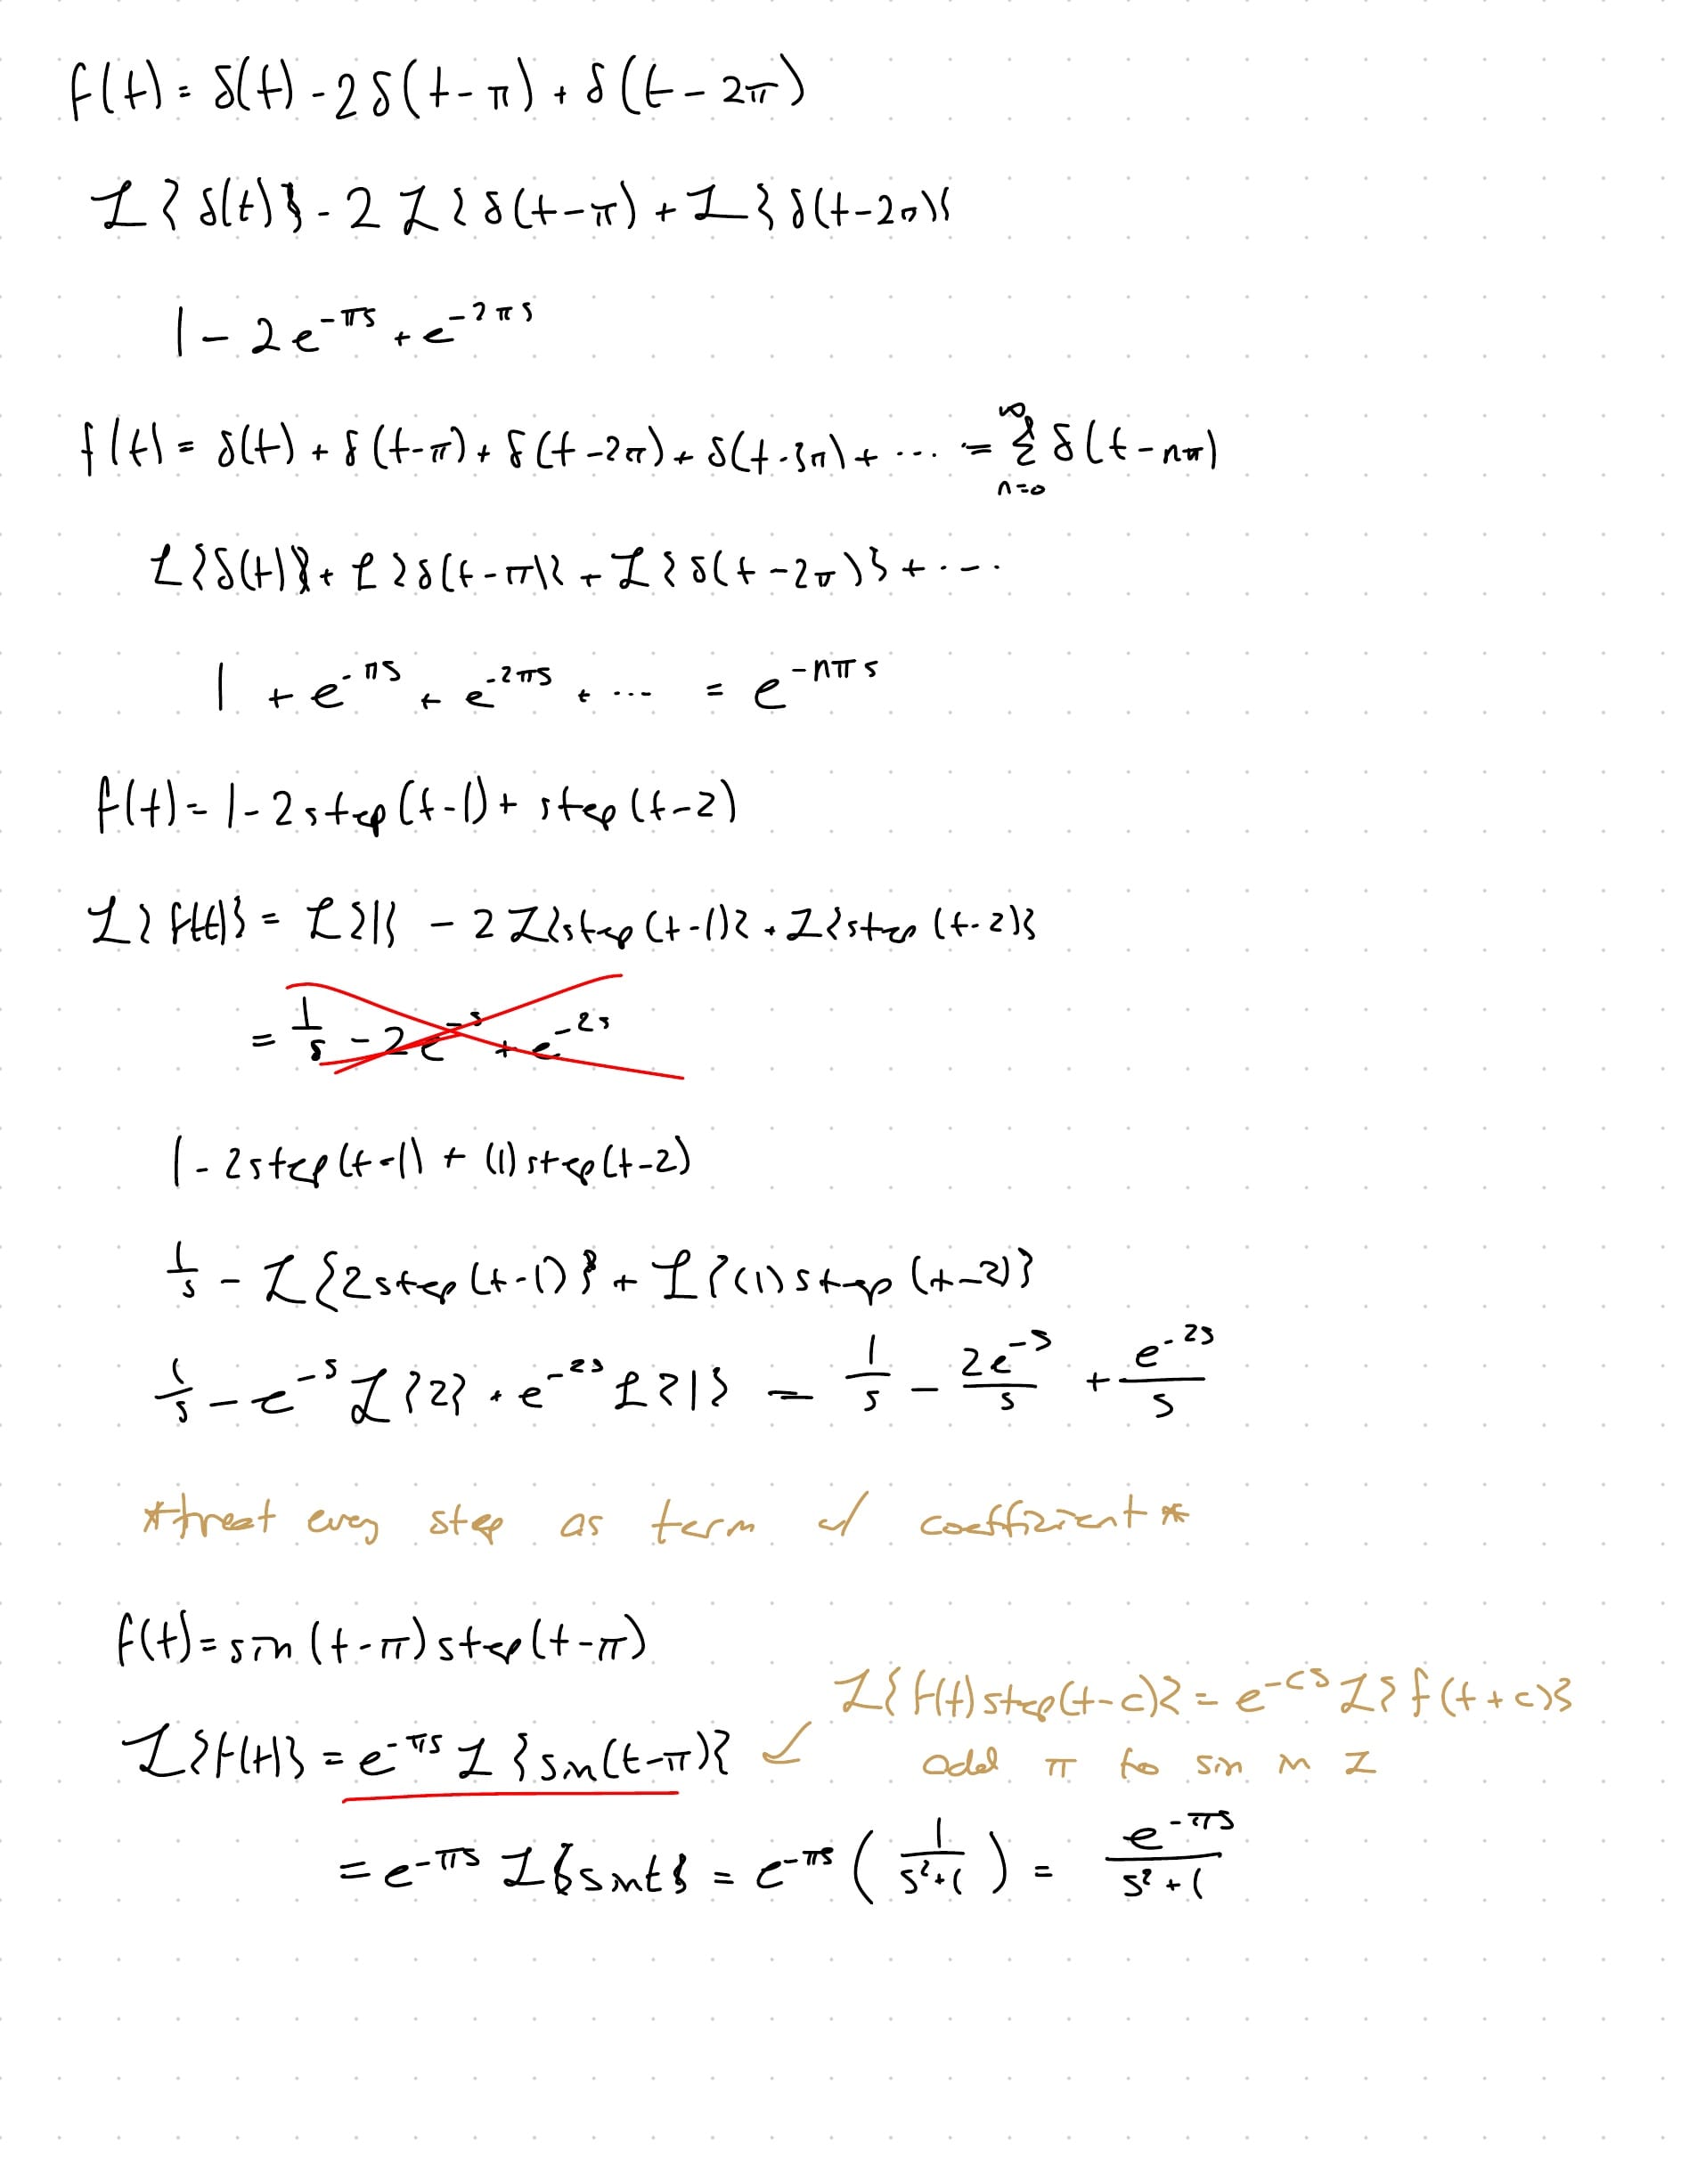 f(t) = δ(t) - 2δ(t-π) + δ(t-2π)
ℒ{δ(t)} - 2ℒ{δ(t-π) + ℒ{δ(t-2π)}
1 - 2e^{-πs} + e^{-2πs}
f(t) = δ(t) + δ(t-π) + δ(t-2π) + δ(t-3π) + ... = ∑_{n=0}^{∞} δ(t-nπ)
ℒ{δ(t)} + ℒ{δ(t-π)} + ℒ{δ(t-2π)} + ...
1 + e^{-πs} + e^{-2πs} + ... = e^{-nπs}
f(t) = 1 - 2step(t-1) + step(t-2)
ℒ{f(t)} = ℒ{1} - 2ℒ{step(t-1)} + ℒ{step(t-2)}
= 1/s - 2e^{-s} + e^{-2s}
1 - 2step(t-1) + (1)step(t-2)
1/s - ℒ{2step(t-1)} + ℒ{(1)step(t-2)}
1/s - e^{-s}ℒ{2} + e^{-2s}ℒ{1} = 1/s - 2e^{-s}/s + e^{-2s}/s
*treat every step as term w/ coefficient*
f(t) = sin(t-π)step(t-π)
ℒ{f(t)step(t-c)} = e^{-cs}ℒ{f(t+c)}
ℒ{f(t)} = e^{-πs}ℒ{sin(t-π)}
add π to sin in ℒ
= e^{-πs}ℒ{sint} = e^{-πs}(1/(s²+1)) = e^{-πs}/(s²+1)